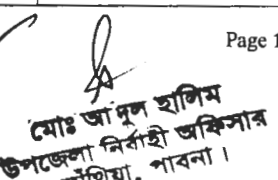 Page 1
মোঃ আব্দুল হালিম
উপজেলা নির্বাহী অফিসার
সাঁথিয়া, পাবনা।